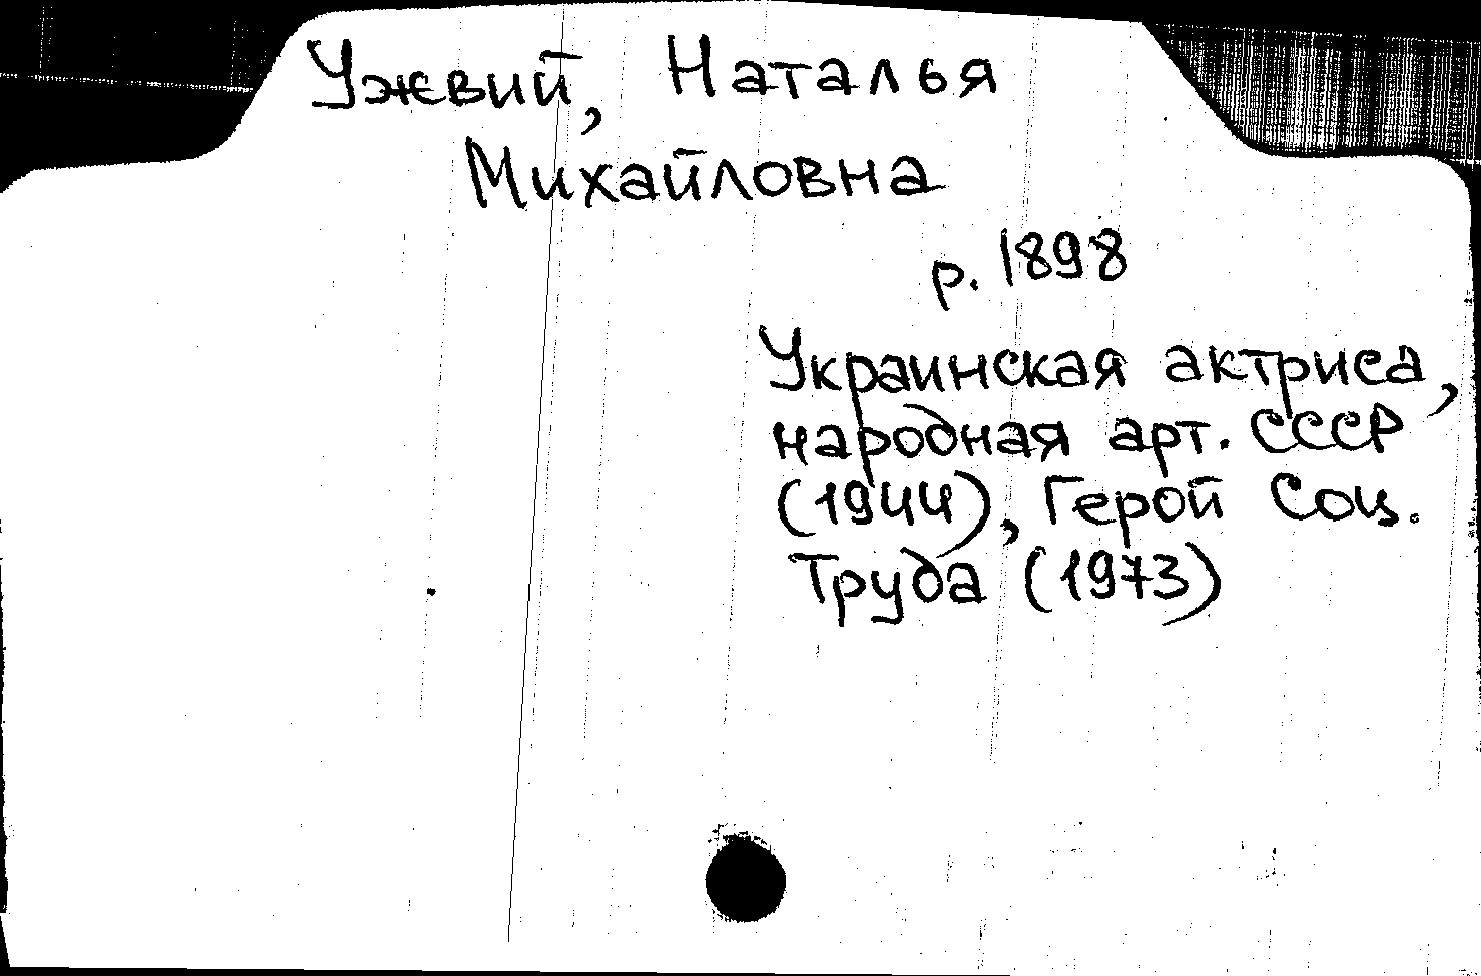 Ужвий, Наталья
Михайловна
р. 1898
Украинская актриса,
народная арт. СССР
(1944), Герой Соц.
Труда (1973)